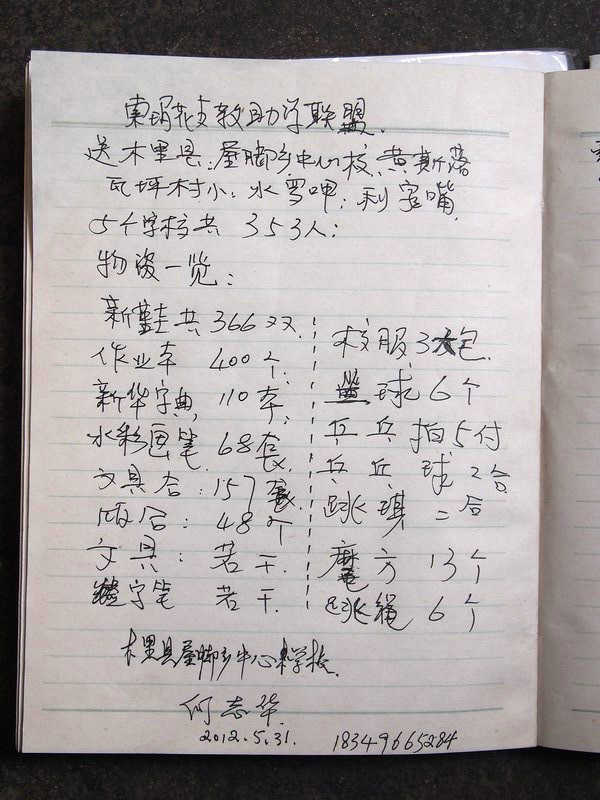 索玛花支教助学联盟.
送木里县:屋脚乡中心校、黄斯落
瓦坪村小:水雪呷:利家嘴
5个学校共353人:
物资一览:
新鞋共366双
作业本 400个
新华字典 110本
水彩画笔 68套
文具合:157套
合:48个
文具:若干.
字笔 若干.
校服3大包.
篮球6个
乒乓拍5付
乒乓球2合
跳棋二合
魔方13个
跳绳6个
木里县屋脚乡中心校学校.
何志华
2012.5.31. 18349665284